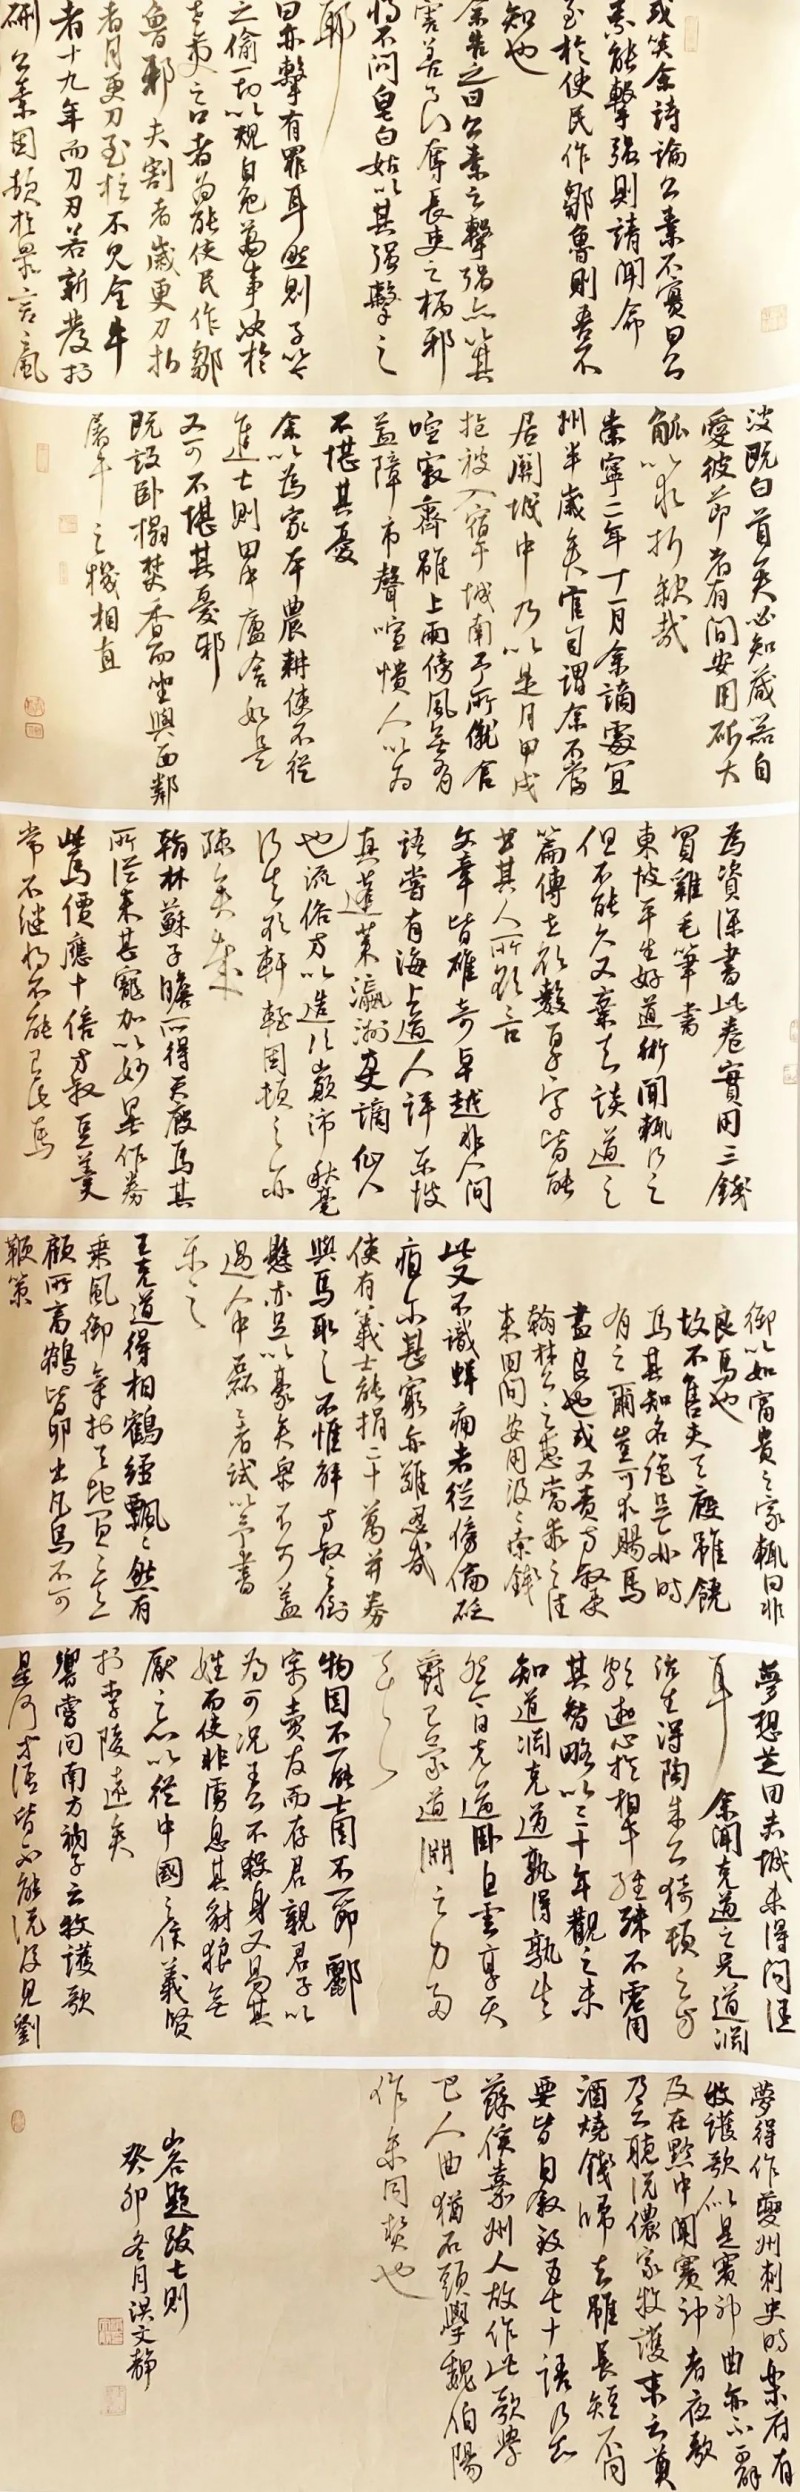 或笑余詩論公素不實曰公
素能擊強則請聞命
至於使民作鄒魯則吾不
知也
余告之曰公素之擊強亦以其
害善良奪長吏之柄邪
將不問皂白姑以其強擊之
耶
曰亦擊有罪耳然則子以今
之偷一切以規自免為事決於
吏之口者為能使民作鄒
魯邪夫割者歲更刀折
者月更刀至於不見全牛
者十九年而刀刃若新發於
硎公素困頓於眾言之風
波既白首矣必知藏器自
愛彼節者有間安用斫大
觚以取折缺哉
崇寧三年十一月余謫處宜
州半歲矣官司謂余不當
居關城中乃以是月甲戌
抱被入宿子城南予所僦舍
喧寂齋雖上雨傍風無有
蓋障市聲喧憒人以為
不堪其憂
余以為家本農耕使不從
進士則田中廬舍如是
又可不堪其憂邪
既設臥榻焚香而坐與西鄰
屠牛之機相直
為資深書此卷實用三錢
買雞毛筆書
東坡平生好道術聞輒行之
但不能久又棄去談道之
篇傳世欲數百千字皆能
書其人所欲言
文章皆雄奇卓越非人間
語嘗有海上道人評東坡
真蓬萊瀛洲方丈謫仙人
也流俗方以造次顛沛秋毫
得失欲軒輊困頓之亦
疎矣哉
翰林蘇子瞻所得天廄馬其
所從來甚寵加以妙墨作券
此馬價應十倍方叔豆羹
常不繼將不能有此馬
御以如富貴之家輒曰非
良馬也
故不售夫天廄雖饒
馬其知名絕足亦時
有之爾豈可求賜馬
盡良也或又責方叔受
翰林公之惠當乘之往
來田間安用汲汲索錢
此又不識蚌痛者從傍論砭
疽爾甚窮亦難忍哉
使有義士能捐二十萬并券
與馬取之不惟解方叔之倒
懸亦足以豪矣眾不可蓋
遇人中磊磊者試以予書
示之
王克道得相鶴經飄飄然有
乘風御氣於天地間之意
顧所畜鶴皆卵出凡鳥不可
鞭策
夢想芝田赤城未得問津
耳
余聞克道之兄道淵
治生得陶朱公猗頓之方
能遊心於相牛經殊不電用
其智略以三十年觀之未
知道淵克道孰得孰失
然今日克道臥白雲享天
爵已蒙道淵之力多
矣
物固不一能士固不一節酈
寄賣友而存君親君子以
為可況春不殺身又易其
姓而使非虜息其豺狼無
厭之心以從中國之保義賢
於李陵遠矣
嚮嘗問南方衲子云牧護歌
是何等語皆不能說後見劉
夢得作夔州刺史時樂府有
牧護歌似是賽神曲亦不可解
及在黔中聞賽神者夜歌
乃云聽說儂家牧護末云奠
酒燒錢歸去雖長短不同
要皆自敘致五七十語乃知
蘇傒嘉州人故作此歌學
巴人曲猶石頭學魏伯陽
作參同契也
山谷題跋七則
癸卯冬月洪文静